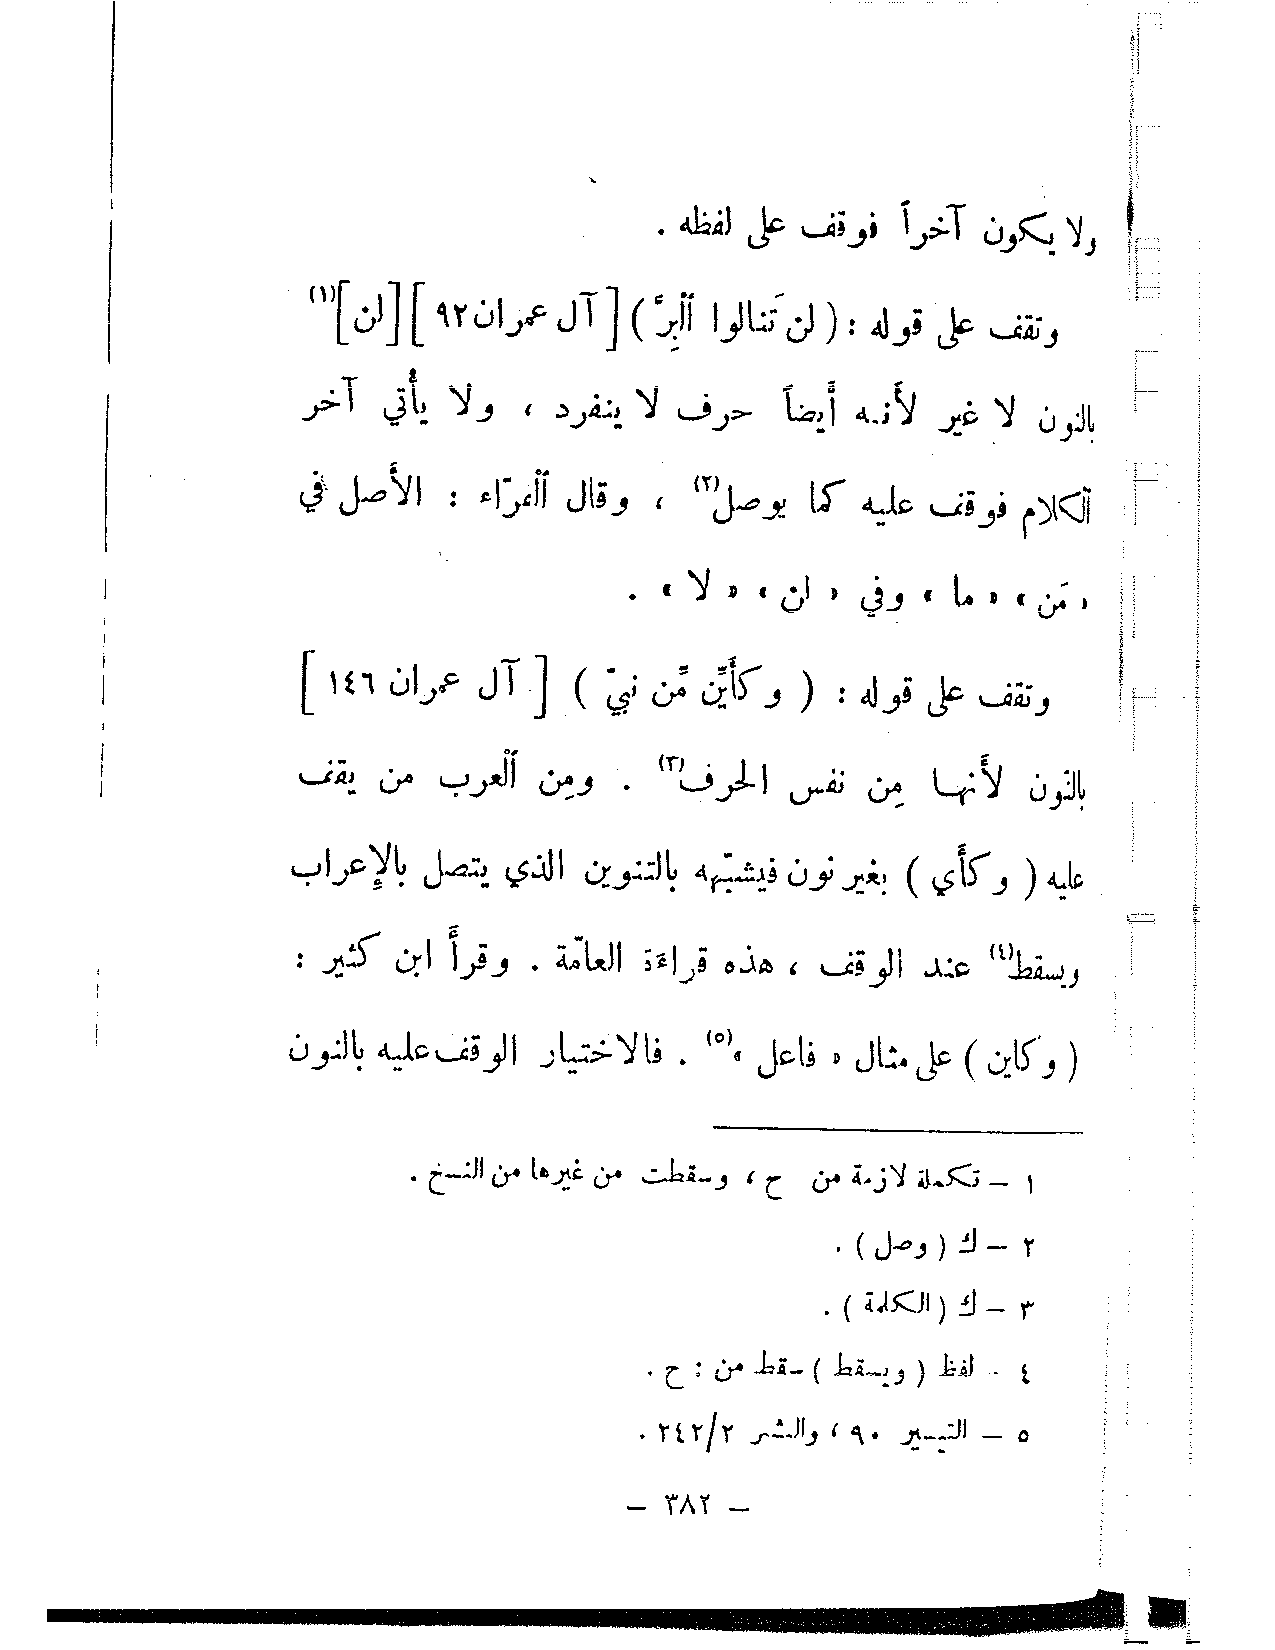 ولا يكون آخراً فوقف على لفظه .
وتقف على قوله : ( لن تَنالوا ٱلْبِرَّ ) [ آل عمران ٩٢ ] [ لن ](١)
بالنون لا غير لأنه أيضاً حرف لا ينفرد ، ولا يأتي آخر
ٱلكلام فوقف عليه كما يوصل(٢) ، وقال ٱلفرّاء : الأصل في
« مَن » « ما » وفي « لن » « لا » .
وتقف على قوله : ( وكأَيِّن مِّن نبيّ ) [ آل عمران ١٤٦ ]
بالنّون لأنها مِن نفس الحرف(٣) . ومِن ٱلعرب من يقف
عليه ( وكأَي ) بغير نون فيشبّهه بالتنوين الذي يتصل بالإعراب
ويسقط(٤) عند الوقف ، هذه قراءة العامّة . وقرأَ ابن كثير :
( وكاين ) على مثال « فاعل »(٥) . فالاختيار الوقف عليه بالنون
١ – تكملة لازمة من ح ، وسقطت من غيرها من النسخ .
٢ – ك ( وصل ) .
٣ – ك ( الكلمة ) .
٤ - لفظ ( ويسقط ) سقط من : ح .
٥ – التيسير ٩٠ ، والنشر ٢/٢٤٢ .
– ٣٨٢ –